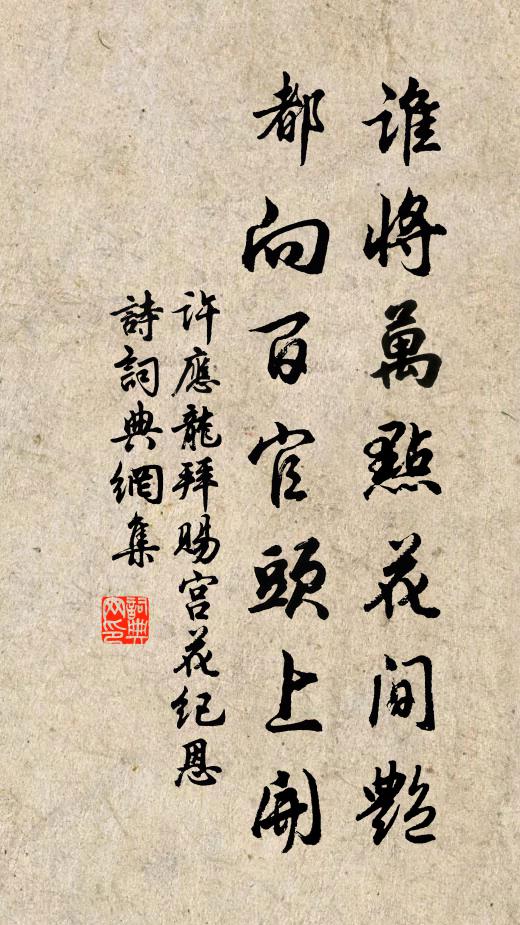 誰將萬點花間艷
都向百官頭上開
許應龍拜賜宮花紀恩
詩詞典網集
詞典網印